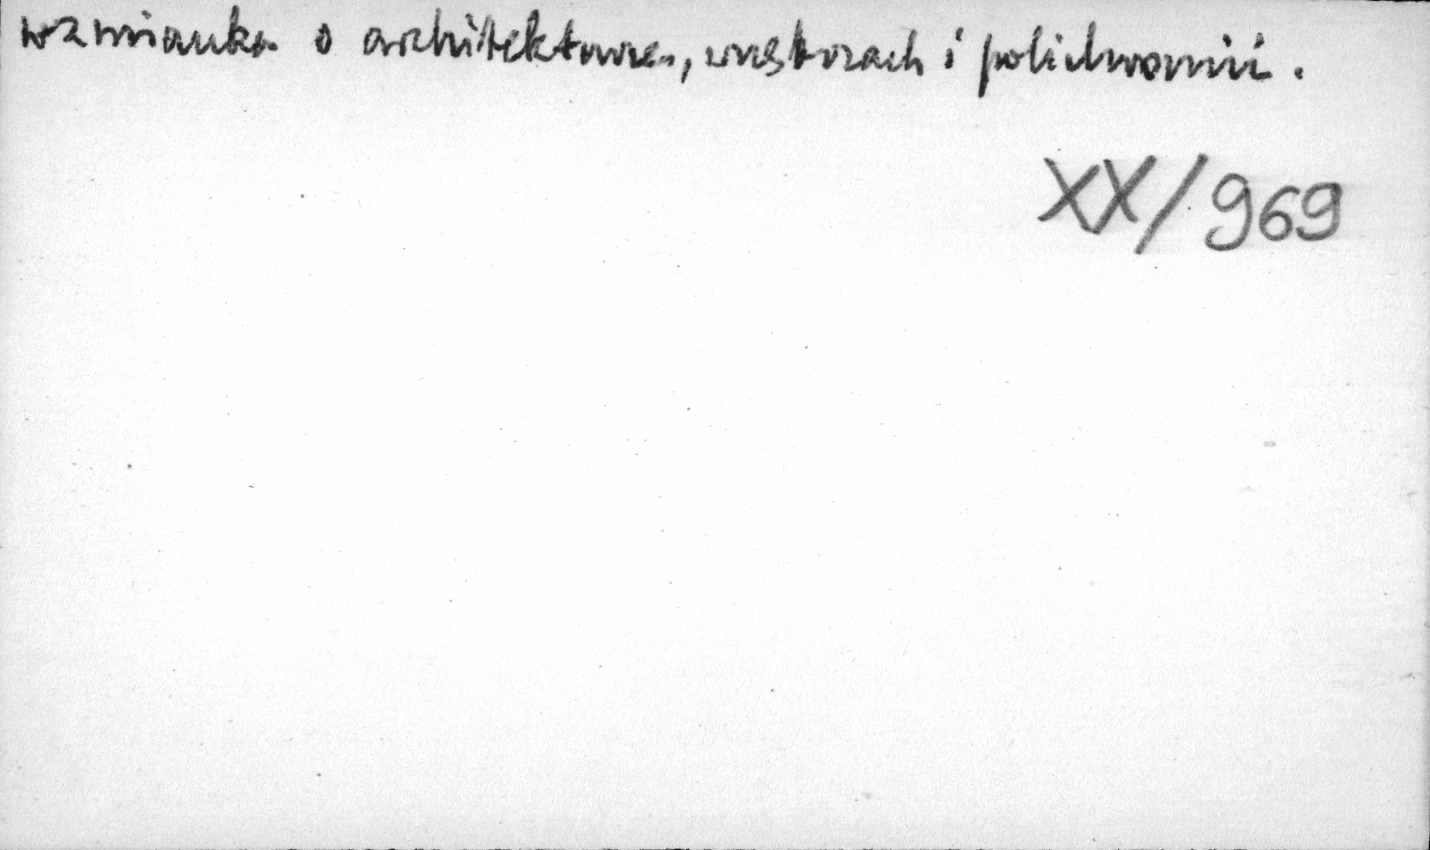 wzmianka o architekturze, wnętrzach i polichromii.
XX/969